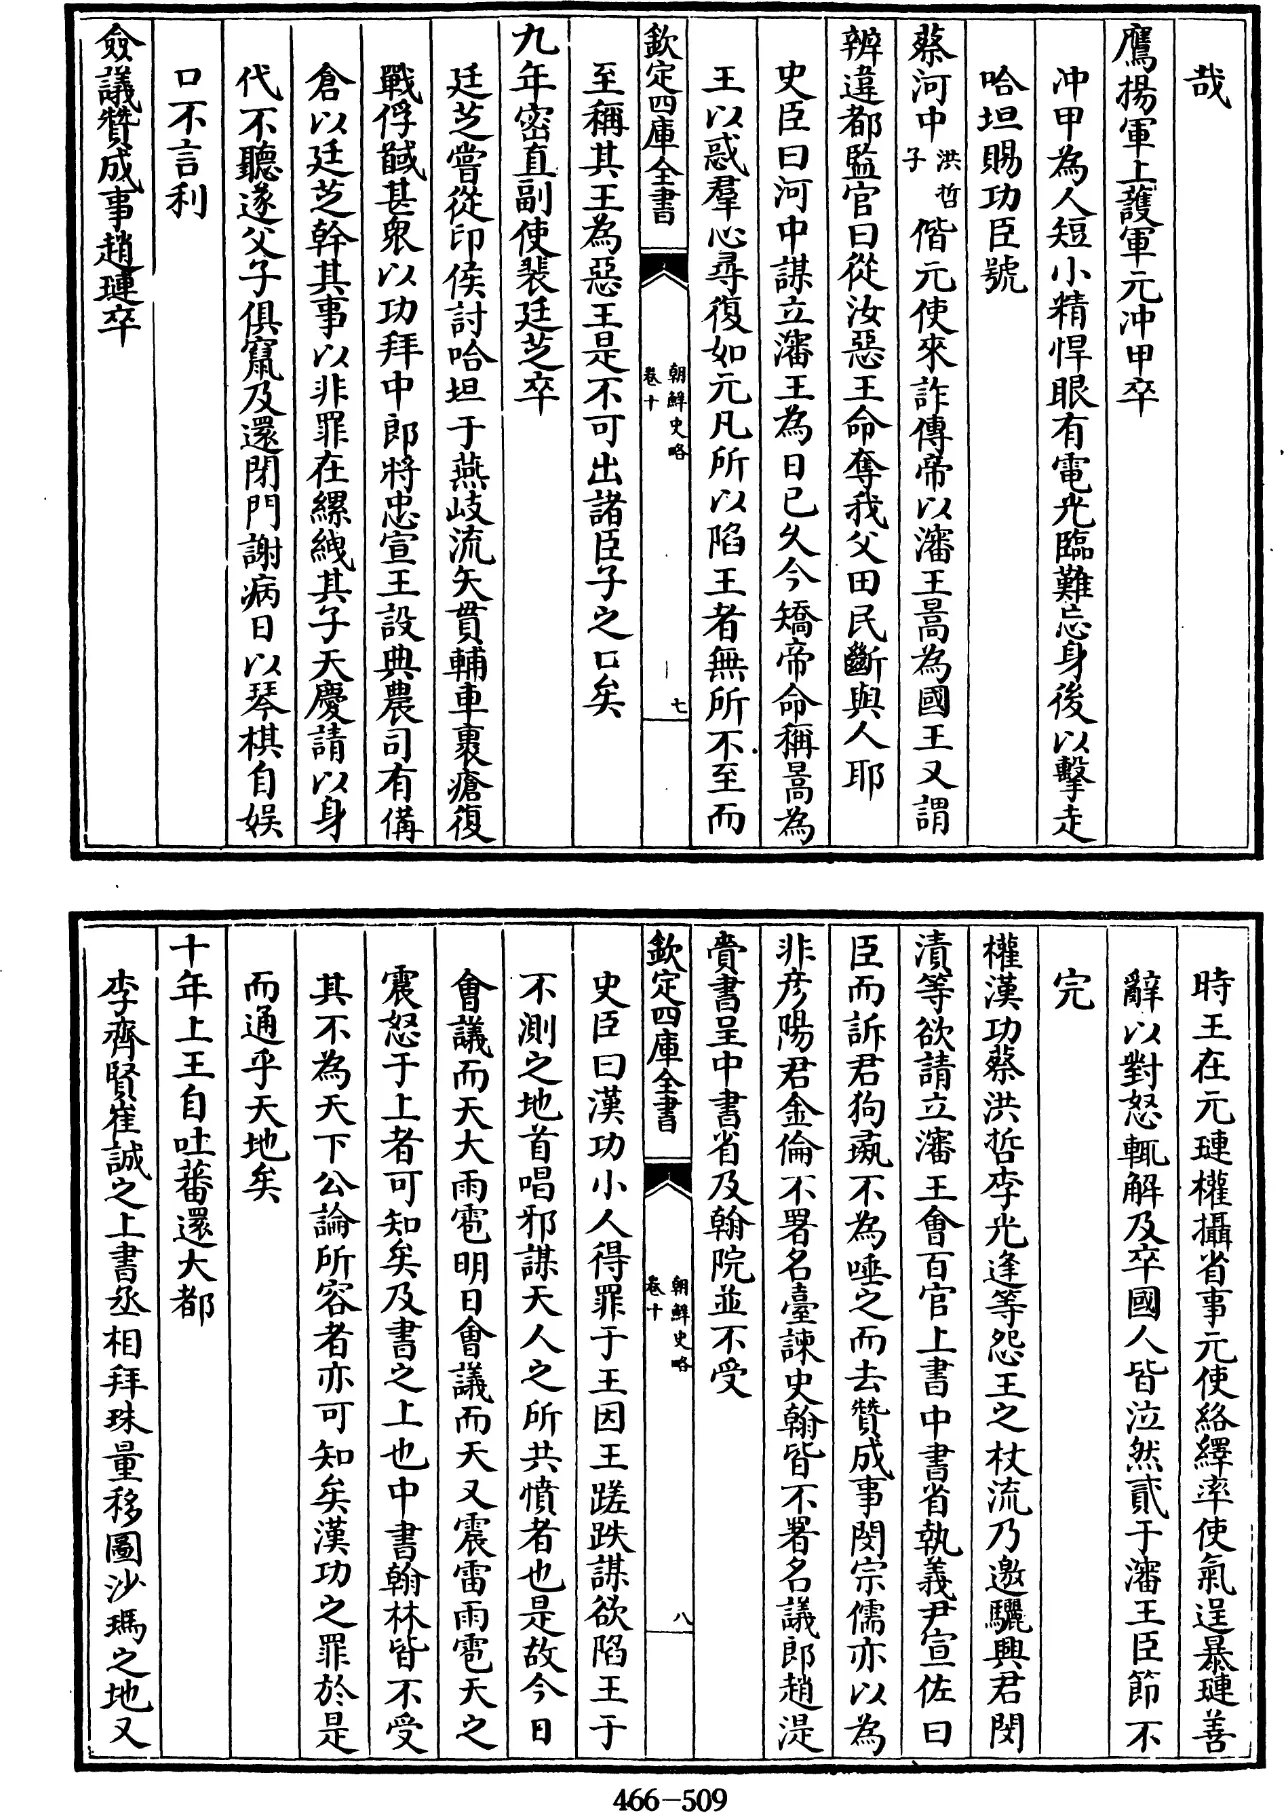 哉
鷹揚軍上護軍元冲甲卒
冲甲為人短小精悍眼有電光臨難忘身後以擊走
哈坦賜功臣號
蔡河中洪哲子偕元使來詐傳帝以瀋王暠為國王又謂
辨違都監官曰從汝惡王命奪我父田民斷與人耶
史臣曰河中謀立瀋王為日已久今矯帝命稱暠為
王以惑羣心尋復如元凡所以陷王者無所不至而
欽定四庫全書
朝鮮史略
卷十
七
至稱其王為惡王是不可出諸臣子之口矣
九年密直副使裴廷芝卒
廷芝嘗從印侯討哈坦于燕岐流矢貫輔車裹瘡復
戰俘馘甚衆以功拜中郎將忠宣王設典農司有備
倉以廷芝幹其事以非罪在縲絏其子天慶請以身
代不聽遂父子俱竄及還閉門謝病日以琴棋自娛
口不言利
僉議贊成事趙璉卒
時王在元璉權攝省事元使絡繹率使氣逞暴璉善
辭以對怒輒解及卒國人皆泣然貳于瀋王臣節不
完
權漢功蔡洪哲李光逢等怨王之杖流乃邀驪興君閔
漬等欲請立瀋王會百官上書中書省執義尹宣佐曰
臣而訴君狗彘不為唾之而去贊成事閔宗儒亦以為
非彥陽君金倫不署名臺諫史翰皆不署名議郎趙湜
賫書呈中書省及翰院並不受
欽定四庫全書
朝鮮史略
卷十
八
史臣曰漢功小人得罪于王因王蹉跌謀欲陷王于
不測之地首唱邪謀天人之所共憤者也是故今日
會議而天大雨雹明日會議而天又震雷雨雹天之
震怒于上者可知矣及書之上也中書翰林皆不受
其不為天下公論所容者亦可知矣漢功之罪於是
而通乎天地矣
十年上王自吐蕃還大都
李齊賢崔誠之上書丞相拜珠量移圖沙瑪之地又
466-509